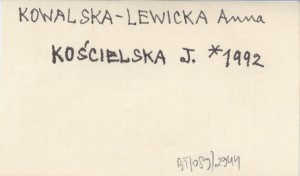 KOWALSKA-LEWICKA Anna
KOŚCIELSKA J. *1992
BT/059/2944